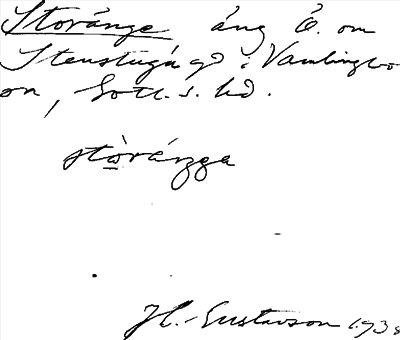 Storänge äng Ö. om
Stenstugu gd i Vamlingbo
sn, Gotl. s. hd.
stòráŋga
H. Gustavson 1938